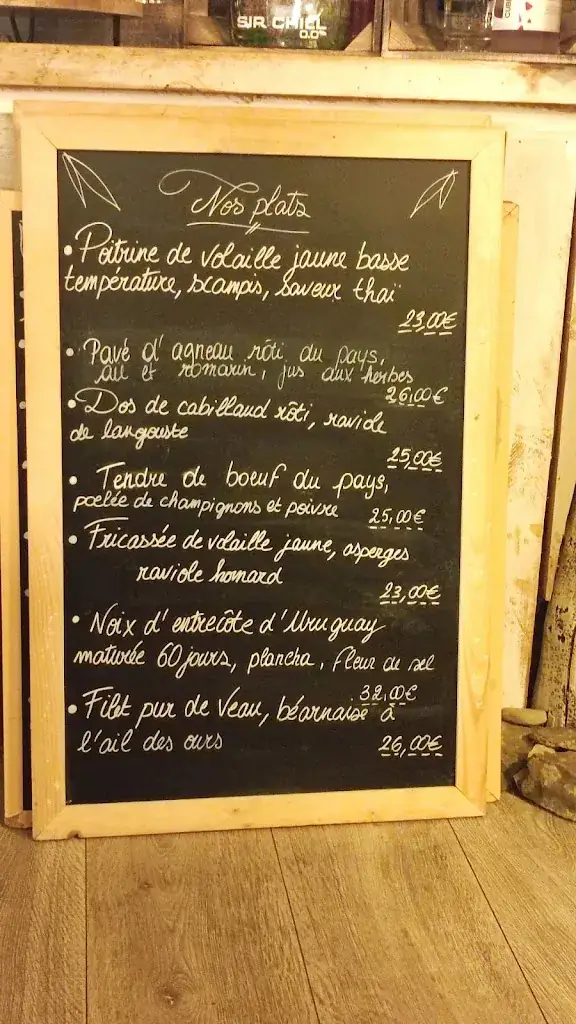 SIR CHILL
0.0%
Nos plats
• Poitrine de volaille jaune basse
température, scampis, saveur thaï
23,00€
• Pavé d'agneau rôti du pays,
ail et romarin, jus aux herbes
26,00€
• Dos de cabillaud rôti, raviole
de langouste
25,00€
• Tendre de boeuf du pays,
poelée de champignons et poivre
25,00€
• Fricassée de volaille jaune, asperges
raviole homard
23,00€
• Noix d'entrecôte d'Uruguay
maturée 60 jours, plancha, fleur de sel
32,00€
• Filet pur de Veau, béarnaise à
l'ail des ours
26,00€